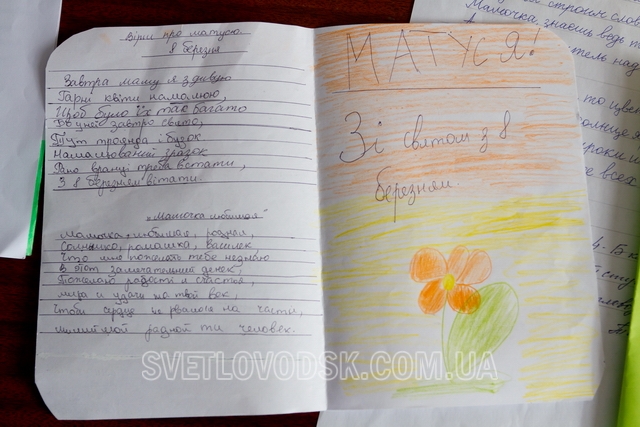 Вірш про матусю
8 березня
Завтра маму я здивую
Гарні квіти намалюю,
Щоб було їх так багато
Бо у неї завтра свято,
Тут троянда і бузок
Намальований зразок
Рано вранці треба встати,
З 8 березням вітати.
„Мамочка любимая"
Мамочка, любимая, родная,
Солнышко, ромашка, василек,
Что мне пожелать тебе незнаю
В этот замечательний денек,
Пожелаю радости и счастья,
мира и удачи на твой век,
Чтобы сердце не рвалося на части,
милий мой радной ти человек.
МАТУСЯ!
Зі святом з 8
березням.
Мамочка, знаешь ведь
SVETLOVODSK.COM.UA